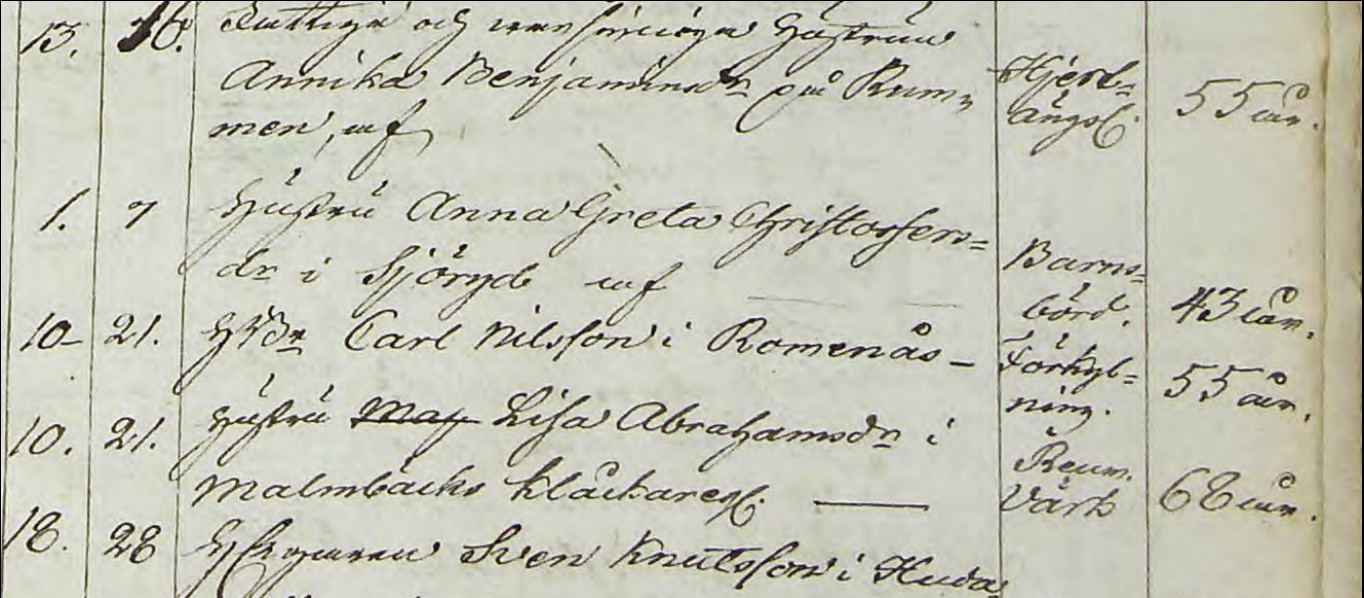 13. 16. Fattiga och vansinniga Hustrun
Annika Benjaminsdr på Rum=
men, uf
Hjert=
ängsl. 55 år.
1. 7 Hustru Anna Greta Christoffers=
dr i Sjöryd uf
Barns=
börd. 43 år.
10 - 21. Carl Nilsson i Romenås -
Förkyl=
ning. 55 år.
10. 21. Hustru Lisa Abrahamsdr i
Malmbäcks Klåckaregl.
Reum.
Värk 68 år.
18. 28 Sven Knutsson i Huda=